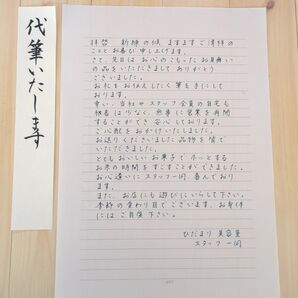 代筆いたします
拝啓 新緑の候 ますますご清祥の
こととお喜び申し上げます。
さて、先日は お心のこもったお見舞い
の品をいただきまして ありがとう
ございました。
お礼をお伝えしたく筆を手にして
おります。
幸い、当社やスタッフ全員の自宅も
被害は少なく、無事に営業を再開
することができ 安心しております。
ご心配をおかけいたしました。
お送りくださいました品物を皆で
いただきました。
とてもおいしいお菓子で ホッとする
お茶の時間をすごすことができました。
お心遣いにスタッフ一同、喜んでおり
ます。
また、お店にも遊びにいらして下さい。
季節の変わり目でございます。お身体
にはご自愛下さい。
ひだまり 美容室
スタッフ 一同